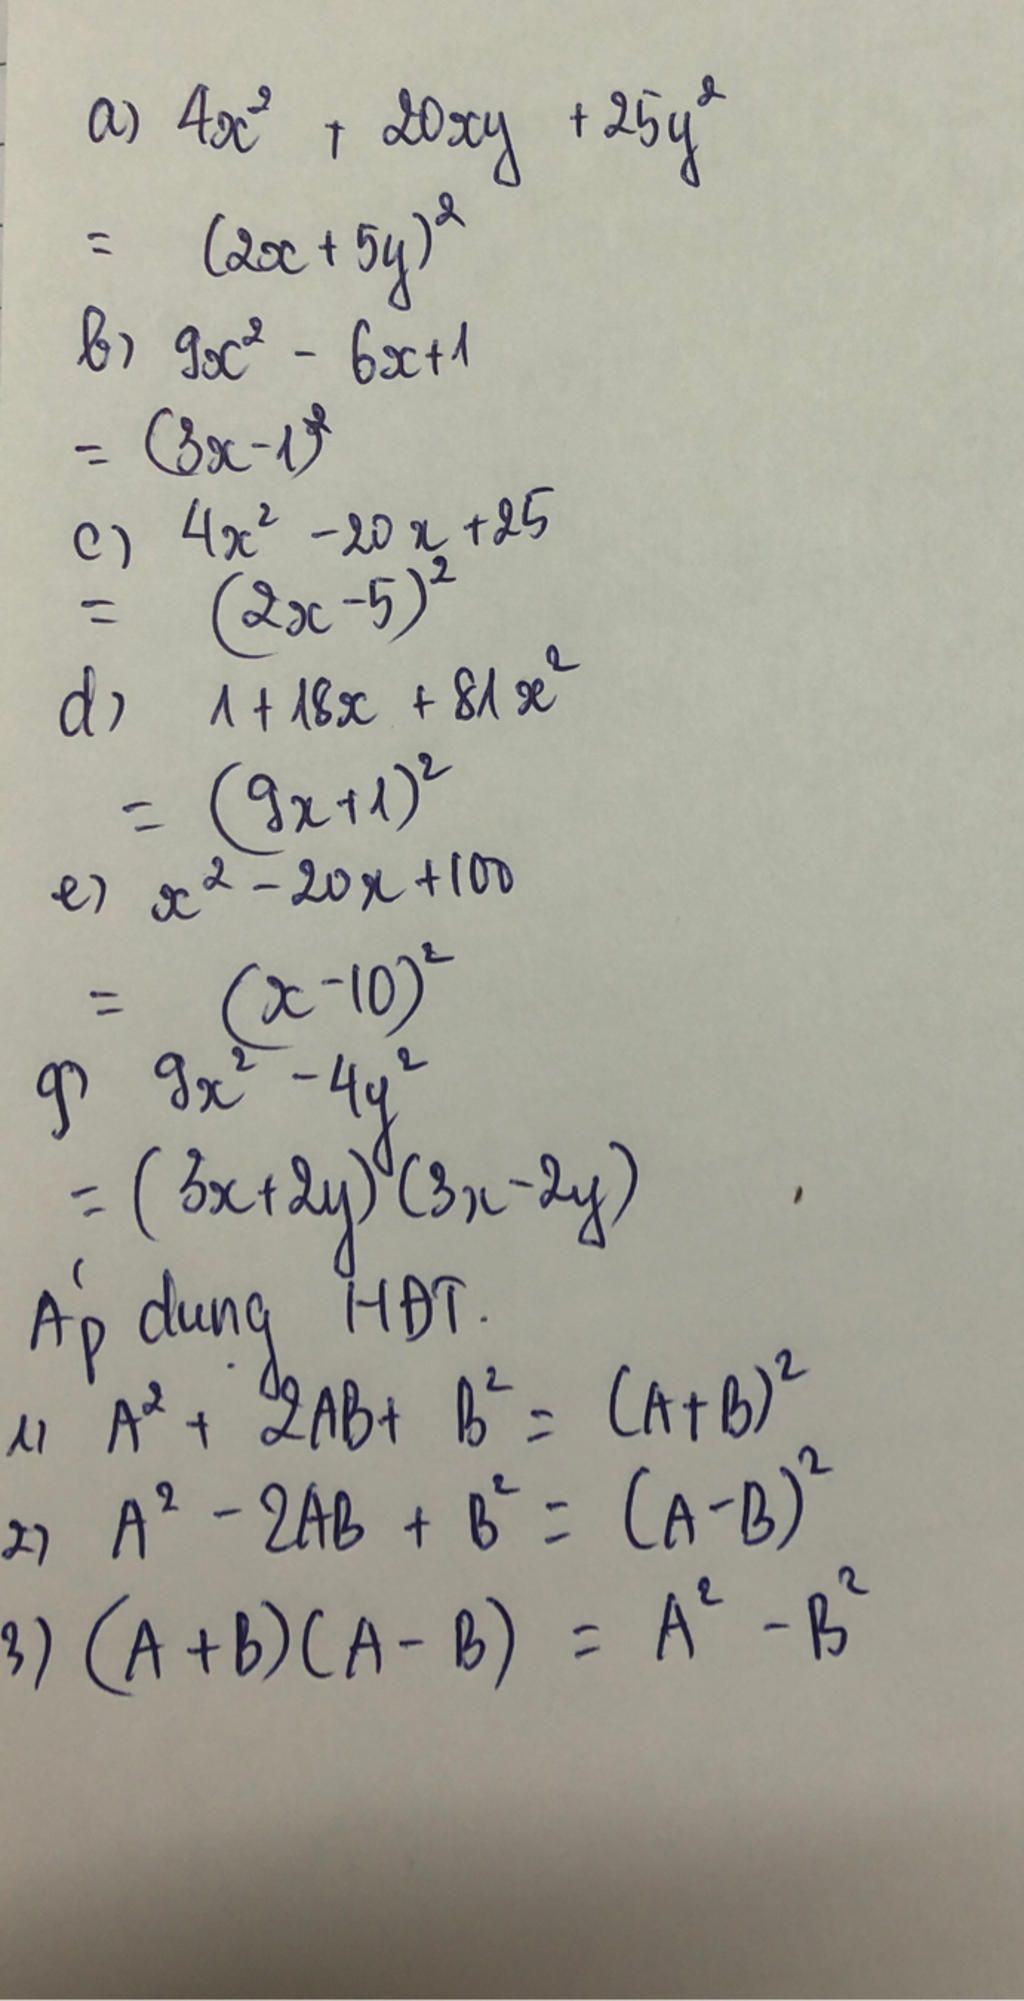 a) 4x² + 20xy + 25y²
= (2x + 5y)²
b) 9x² - 6x + 1
= (3x - 1)²
c) 4x² - 20x + 25
= (2x - 5)²
d) 1 + 18x + 81x²
= (9x + 1)²
e) x² - 20x + 100
= (x - 10)²
g) 9x² - 4y²
= (3x + 2y)(3x - 2y)
Áp dụng HĐT.
1) A² + 2AB + B² = (A + B)²
2) A² - 2AB + B² = (A - B)²
3) (A + B)(A - B) = A² - B²